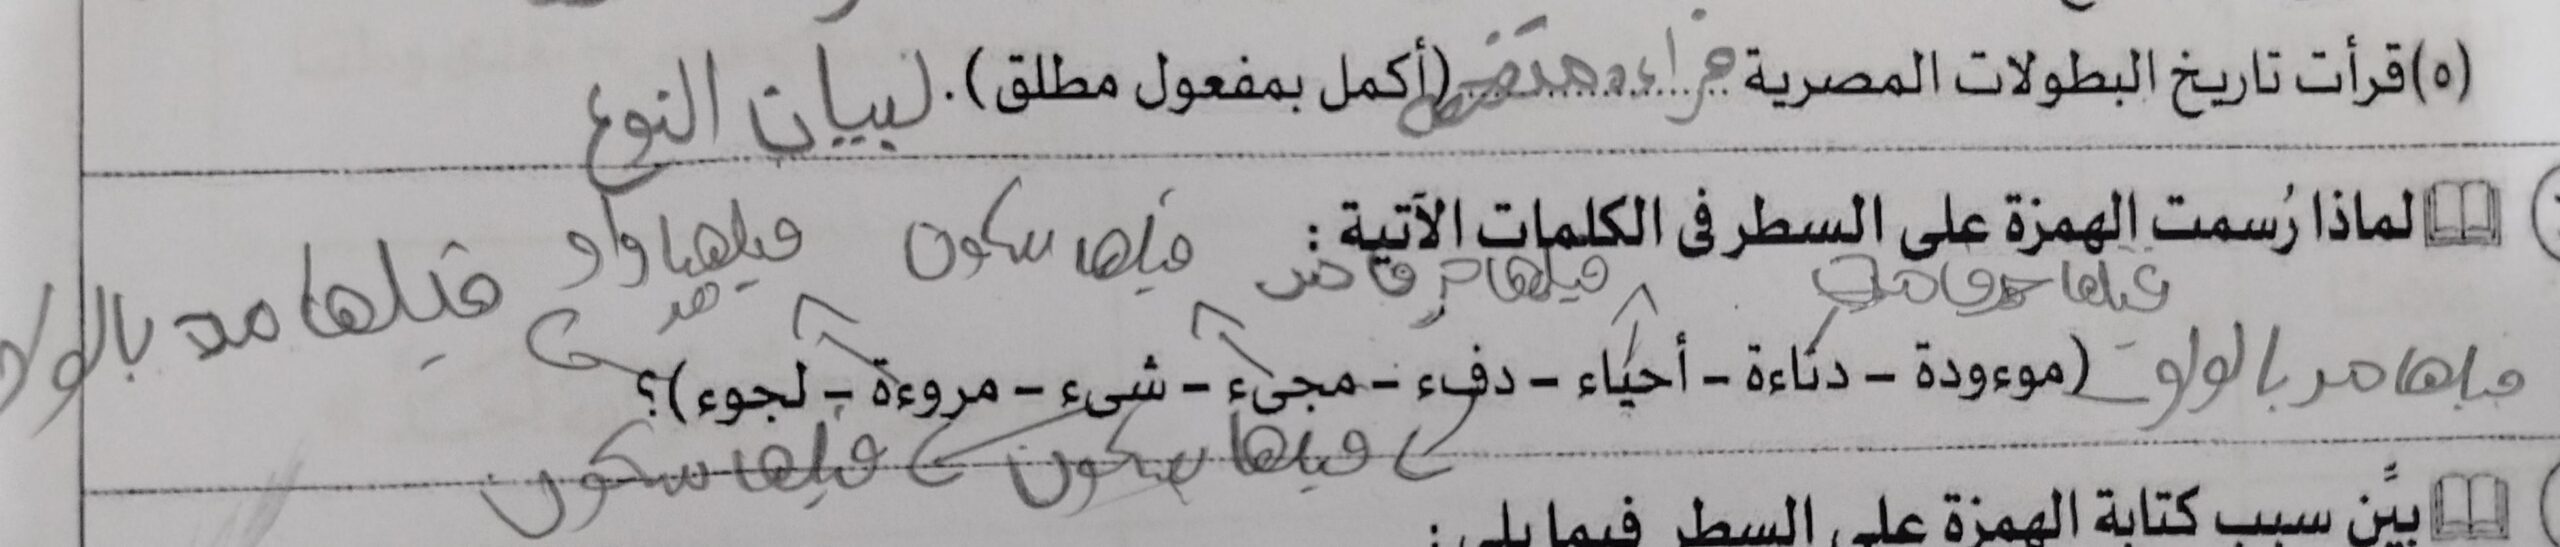 (٥) قرأت تاريخ البطولات المصرية قراءة (أكمل بمفعول مطلق). لبيان النوع
لماذا رُسمت الهمزة على السطر فى الكلمات الآتية :
قبلها سكون
قبلها واو مد
قبلها مد بالواو
قبلها مد بالواو (موءودة – دناءة – أحياء – دفء – مجىء – شىء – مروءة – لجوء)؟
قبلها سكون
قبلها سكون
بيِّن سبب كتابة الهمزة على السطر فيما يلى :